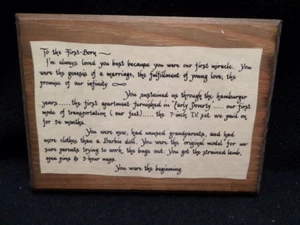 To the First-Born
I've always loved you best because you were our first miracle. You
were the genesis of a marriage, the fulfillment of young love, the
promise of our infinity
You sustained us through the hamburger
years.....the first apartment furnished in "Early Poverty.....our first
mode of transportation (our feet).....the 7-inch TV set we paid on
for 36 months.
You were new, had unused grandparents, and had
more clothes than a Barbie doll. You were the original model for un-
sure parents trying to work the bugs out. You got the strained lamb,
open pins & 3-hour naps.
You were the beginning.